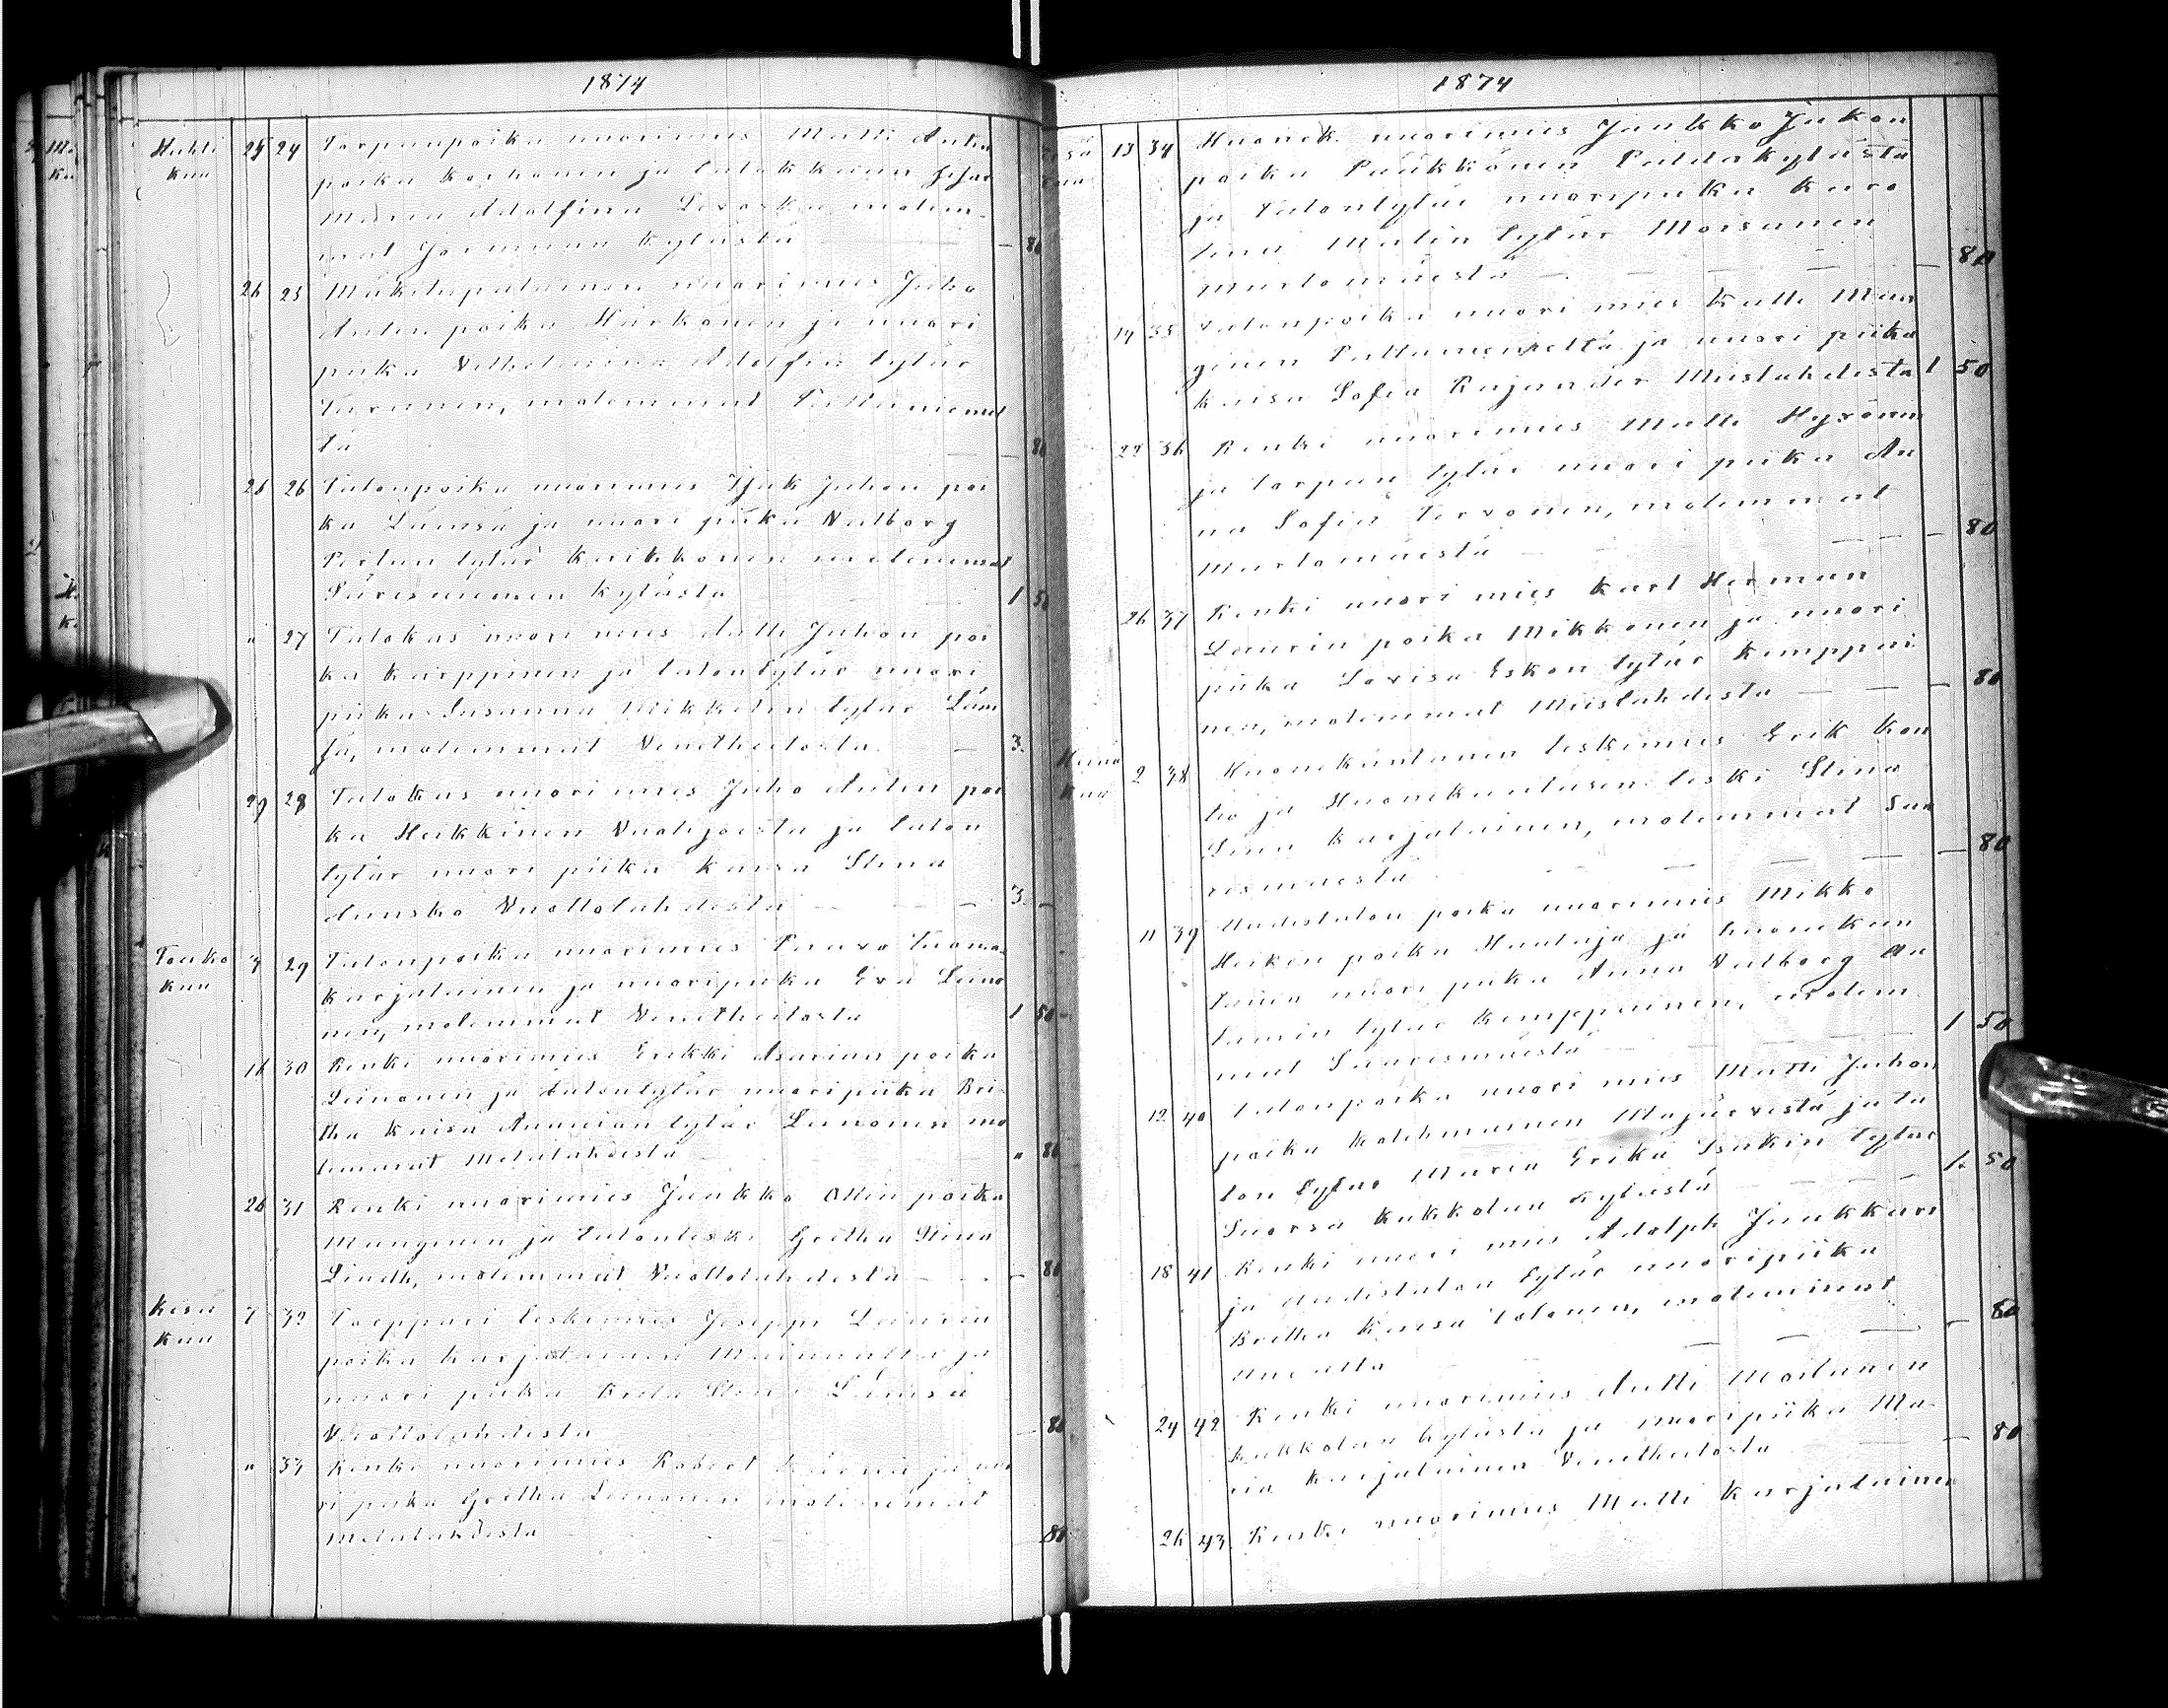 1874
Huhti kuu 25 24 Torpanpoika nuorimies Matti Antin
poika Korhonen ja
Maria Adolfina molem-
mat Jormuan kylästä — 80
26 25 Mäkitupalainen nuorimies Juho
Antin poika Härkönen ja nuori
piika Vilhelmiina Adolfin tytär
Turunen, molemmat Paltaniemel
tä — 80
26 26 Talonpoika nuorimies Isak Juhon poi
ka Lämsä ja nuori piika Valborg
Pertun tytär Keikkonen molemmat
Säresniemen kylästä 1 50
" 27 Talokas nuori mies Antti Juhon poi
ka Karppinen ja talontytär nuori
piika Susanna Mikkelin tytär Läm
sä, molemmat Venetheitosta — 3.
29 28 Talokas nuori mies Juho Antin poi
ka Heikkinen Vuolijoesta ja talon
tytär nuori piika Kaisa Stina
Aunsko Vuottolahdesta — 3. —
Touko kuu 3 29 Talonpoika nuorimies Paavo Tuomas
Karjalainen ja nuoripiika Eva Leino
nen, molemmat Venetheitosta 1 50
16 30 Renki nuorimies Erikki Asarian poika
Leinonen ja talontytär nuoripiika Bri-
tha Kaisa Ananian tytär Leinonen mo
lemmat Melalahdesta " 80
26 31 Renki nuorimies Jaakko Ollin poika
Manginen ja talonleski Gretha Stina
Lindh, molemmat Vuottolahdesta — 80
Kesä kuu 7 32 Torppari leskimies Joseppi Laurin
poika Karjalainen Mainualta ja
nuori piika Greta Stina Lämsä
Vuottolahdesta — 80
" 33 Renki nuorimies Robert Kärnä ja nuo
ri piika Gretha Leinonen molemmat
Melalahdesta 80
1874
Kesä kuu 13 34 Huonek. nuorimies Jaakko Jakon
poika Pääkkönen Paldakylästä
ja Talontytär nuoripiika Karo
lina Matin tytär Moisanen
Murtomäestä — 80
14 35 Talonpoika nuori mies Kalle Man
ginen Paltaniemeltä ja nuori piika
Kaisa Sofia Rajander Mieslahdesta 1 50
22 36 Renki nuorimies Matti Hyvönen
ja torpan tytär nuori piika An
na Sofia Tervonen, molemmat
Murtomäestä — 80
26 37 Renki nuori mies Karl Herman
Laurin poika Mikkonen ja nuori
piika Lovisa Eskon tytär Kemppai
nen, molemmat Mieslahdesta — 80
Heinä kuu 2 38 Huonekuntanen leskimies Erik Kon
tio ja Huonekuntasen leski Stina
Sina Karjalainen, molemmat Saa
resmäestä — 80
11 39 Uudistalon poika nuorimies Mikko
Heikin poika Huataja ja huonekun
taisen nuori piika Anna Valborg Au
tamin tytär Kemppainen, molem
mat Saaresmäestä 1 50
12 40 Talonpoika nuori mies Matti Juhon
poika Kolehmainen Otajärvestä ja ta
lon tytär Maria Erika Isakin tytär
Suorsa Kukkolan kylästä 1. 50
18 41 Renki nuori mies Adolph Juukkari
ja Uudistalon tytär nuoripiika
Britha Kaisa Tolonen, molemmat
— 80
24 42 Renki nuorimies Antti Moilanen
Kukkolan kylästä ja nuoripiika Ma-
ria Karjalainen Venetheitosta — 80
26 43 Renki nuorimies Matti Karjalainen